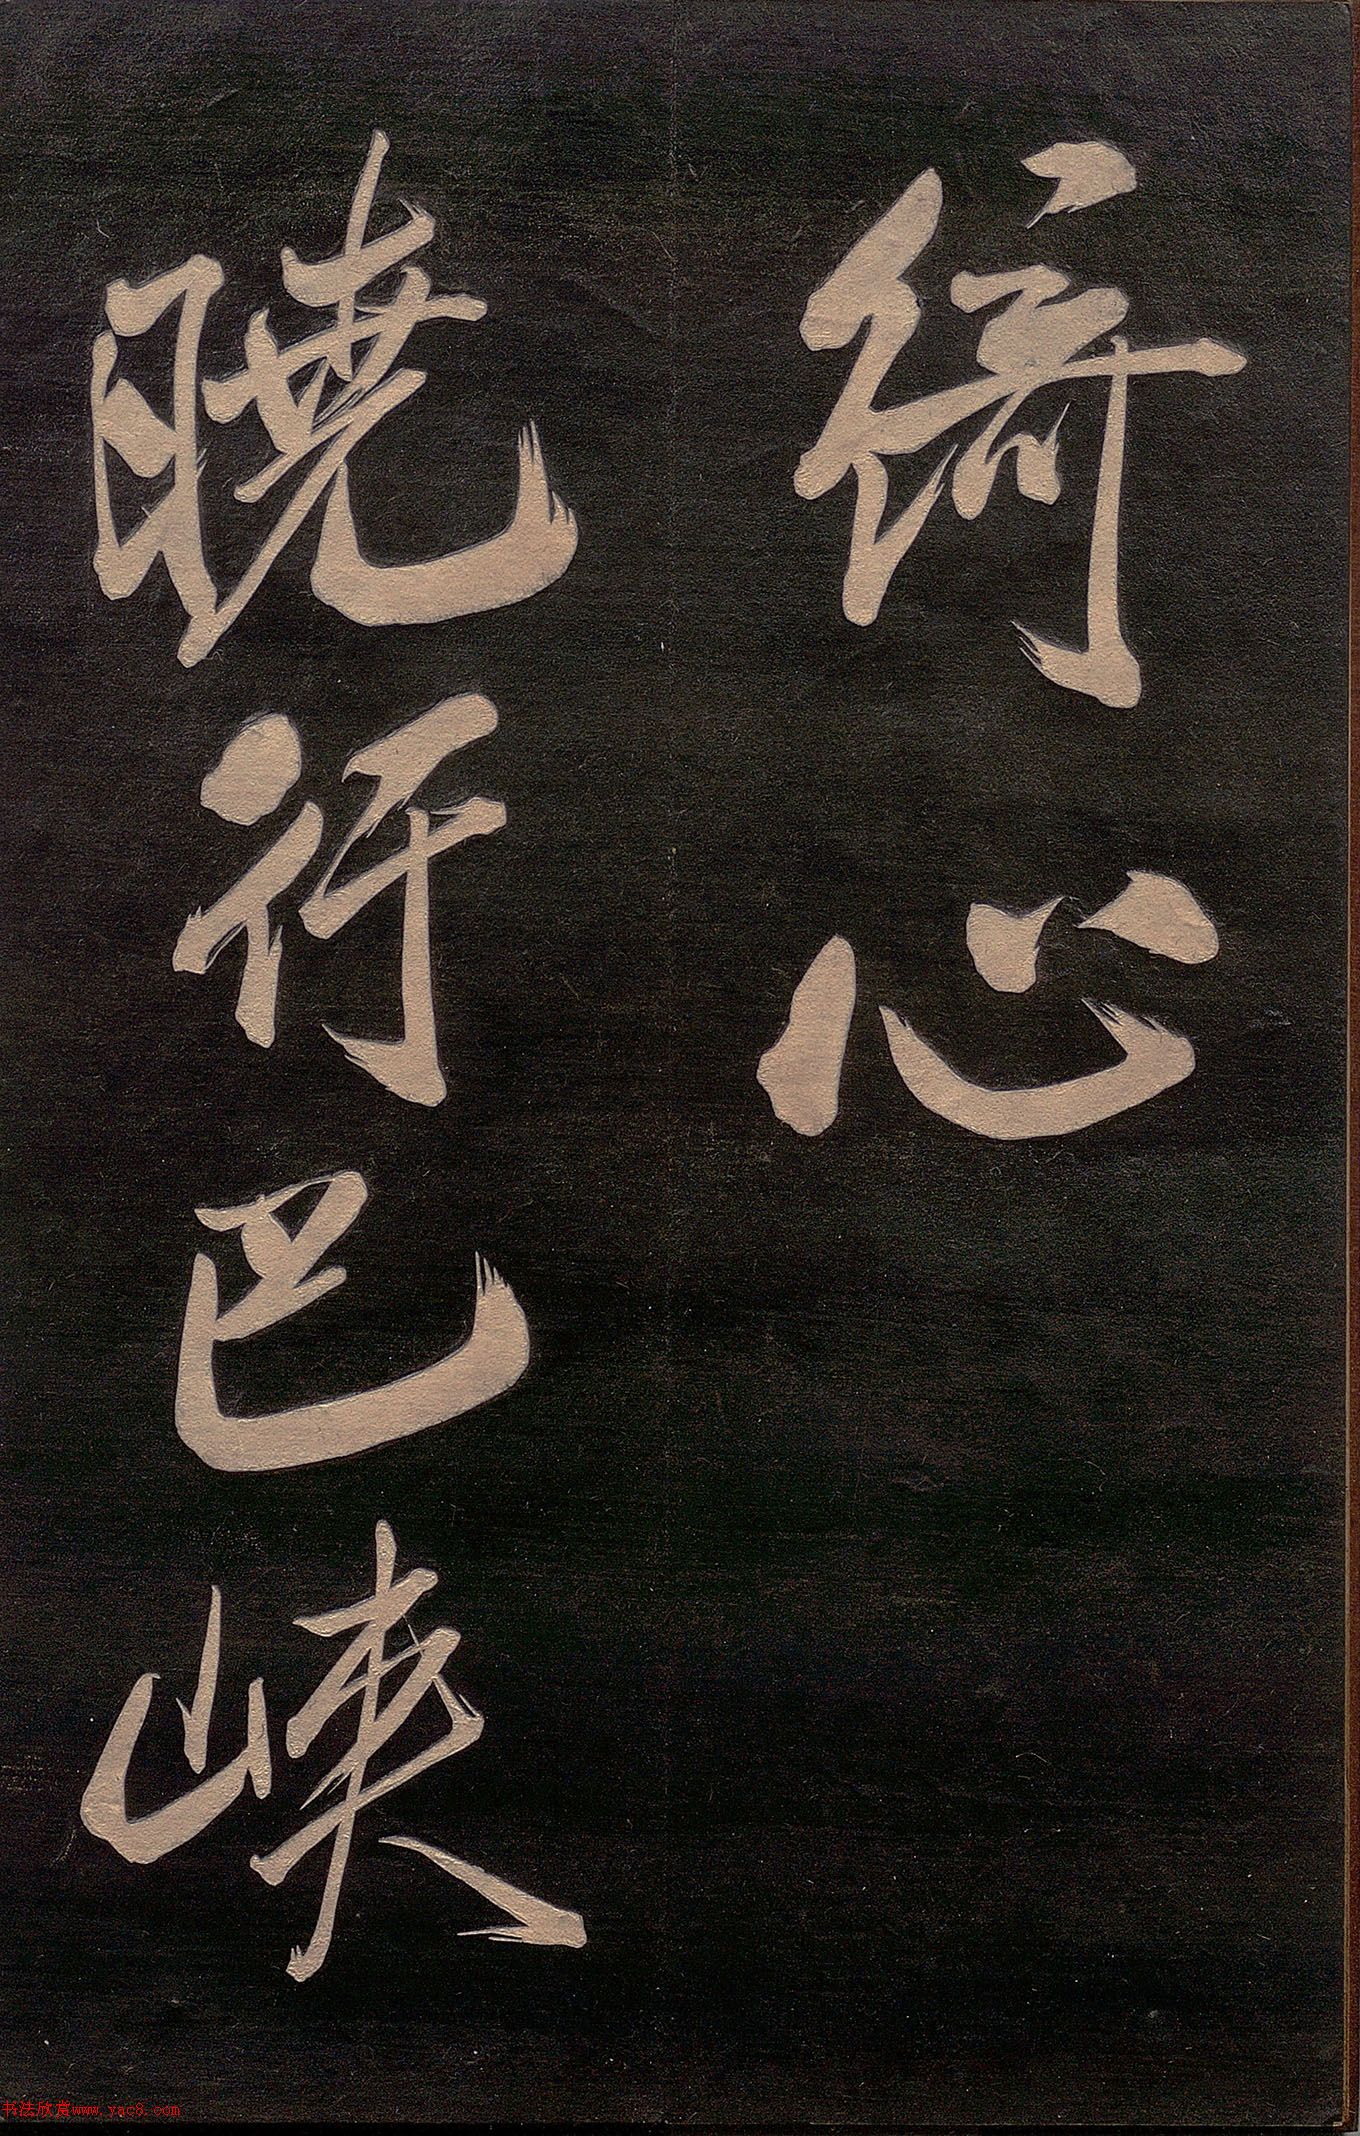 綺心
曉行巴峽
书法欣赏www.yac8.com